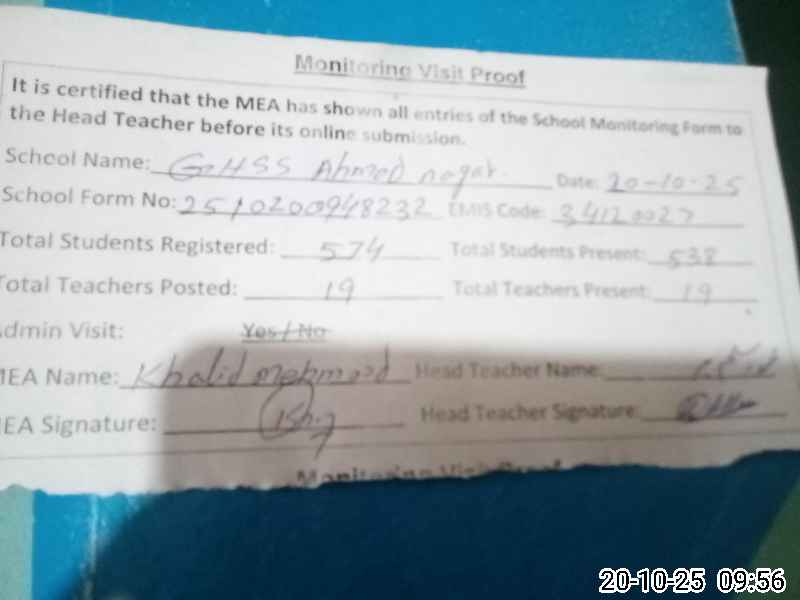 Monitoring Visit Proof
It is certified that the MEA has shown all entries of the School Monitoring Form to
the Head Teacher before its online submission.
School Name: GHSS Ahmed nagar. Date: 20-10-25
School Form No: 2510200948232 EMIS Code: 34120027
Total Students Registered: 574 Total Students Present: 538
Total Teachers Posted: 19 Total Teachers Present: 19
Admin Visit: Yes / No
MEA Name: Khalid mehmood Head Teacher Name:
MEA Signature: Head Teacher Signature:
Monitoring Visit Proof
20-10-25 09:56